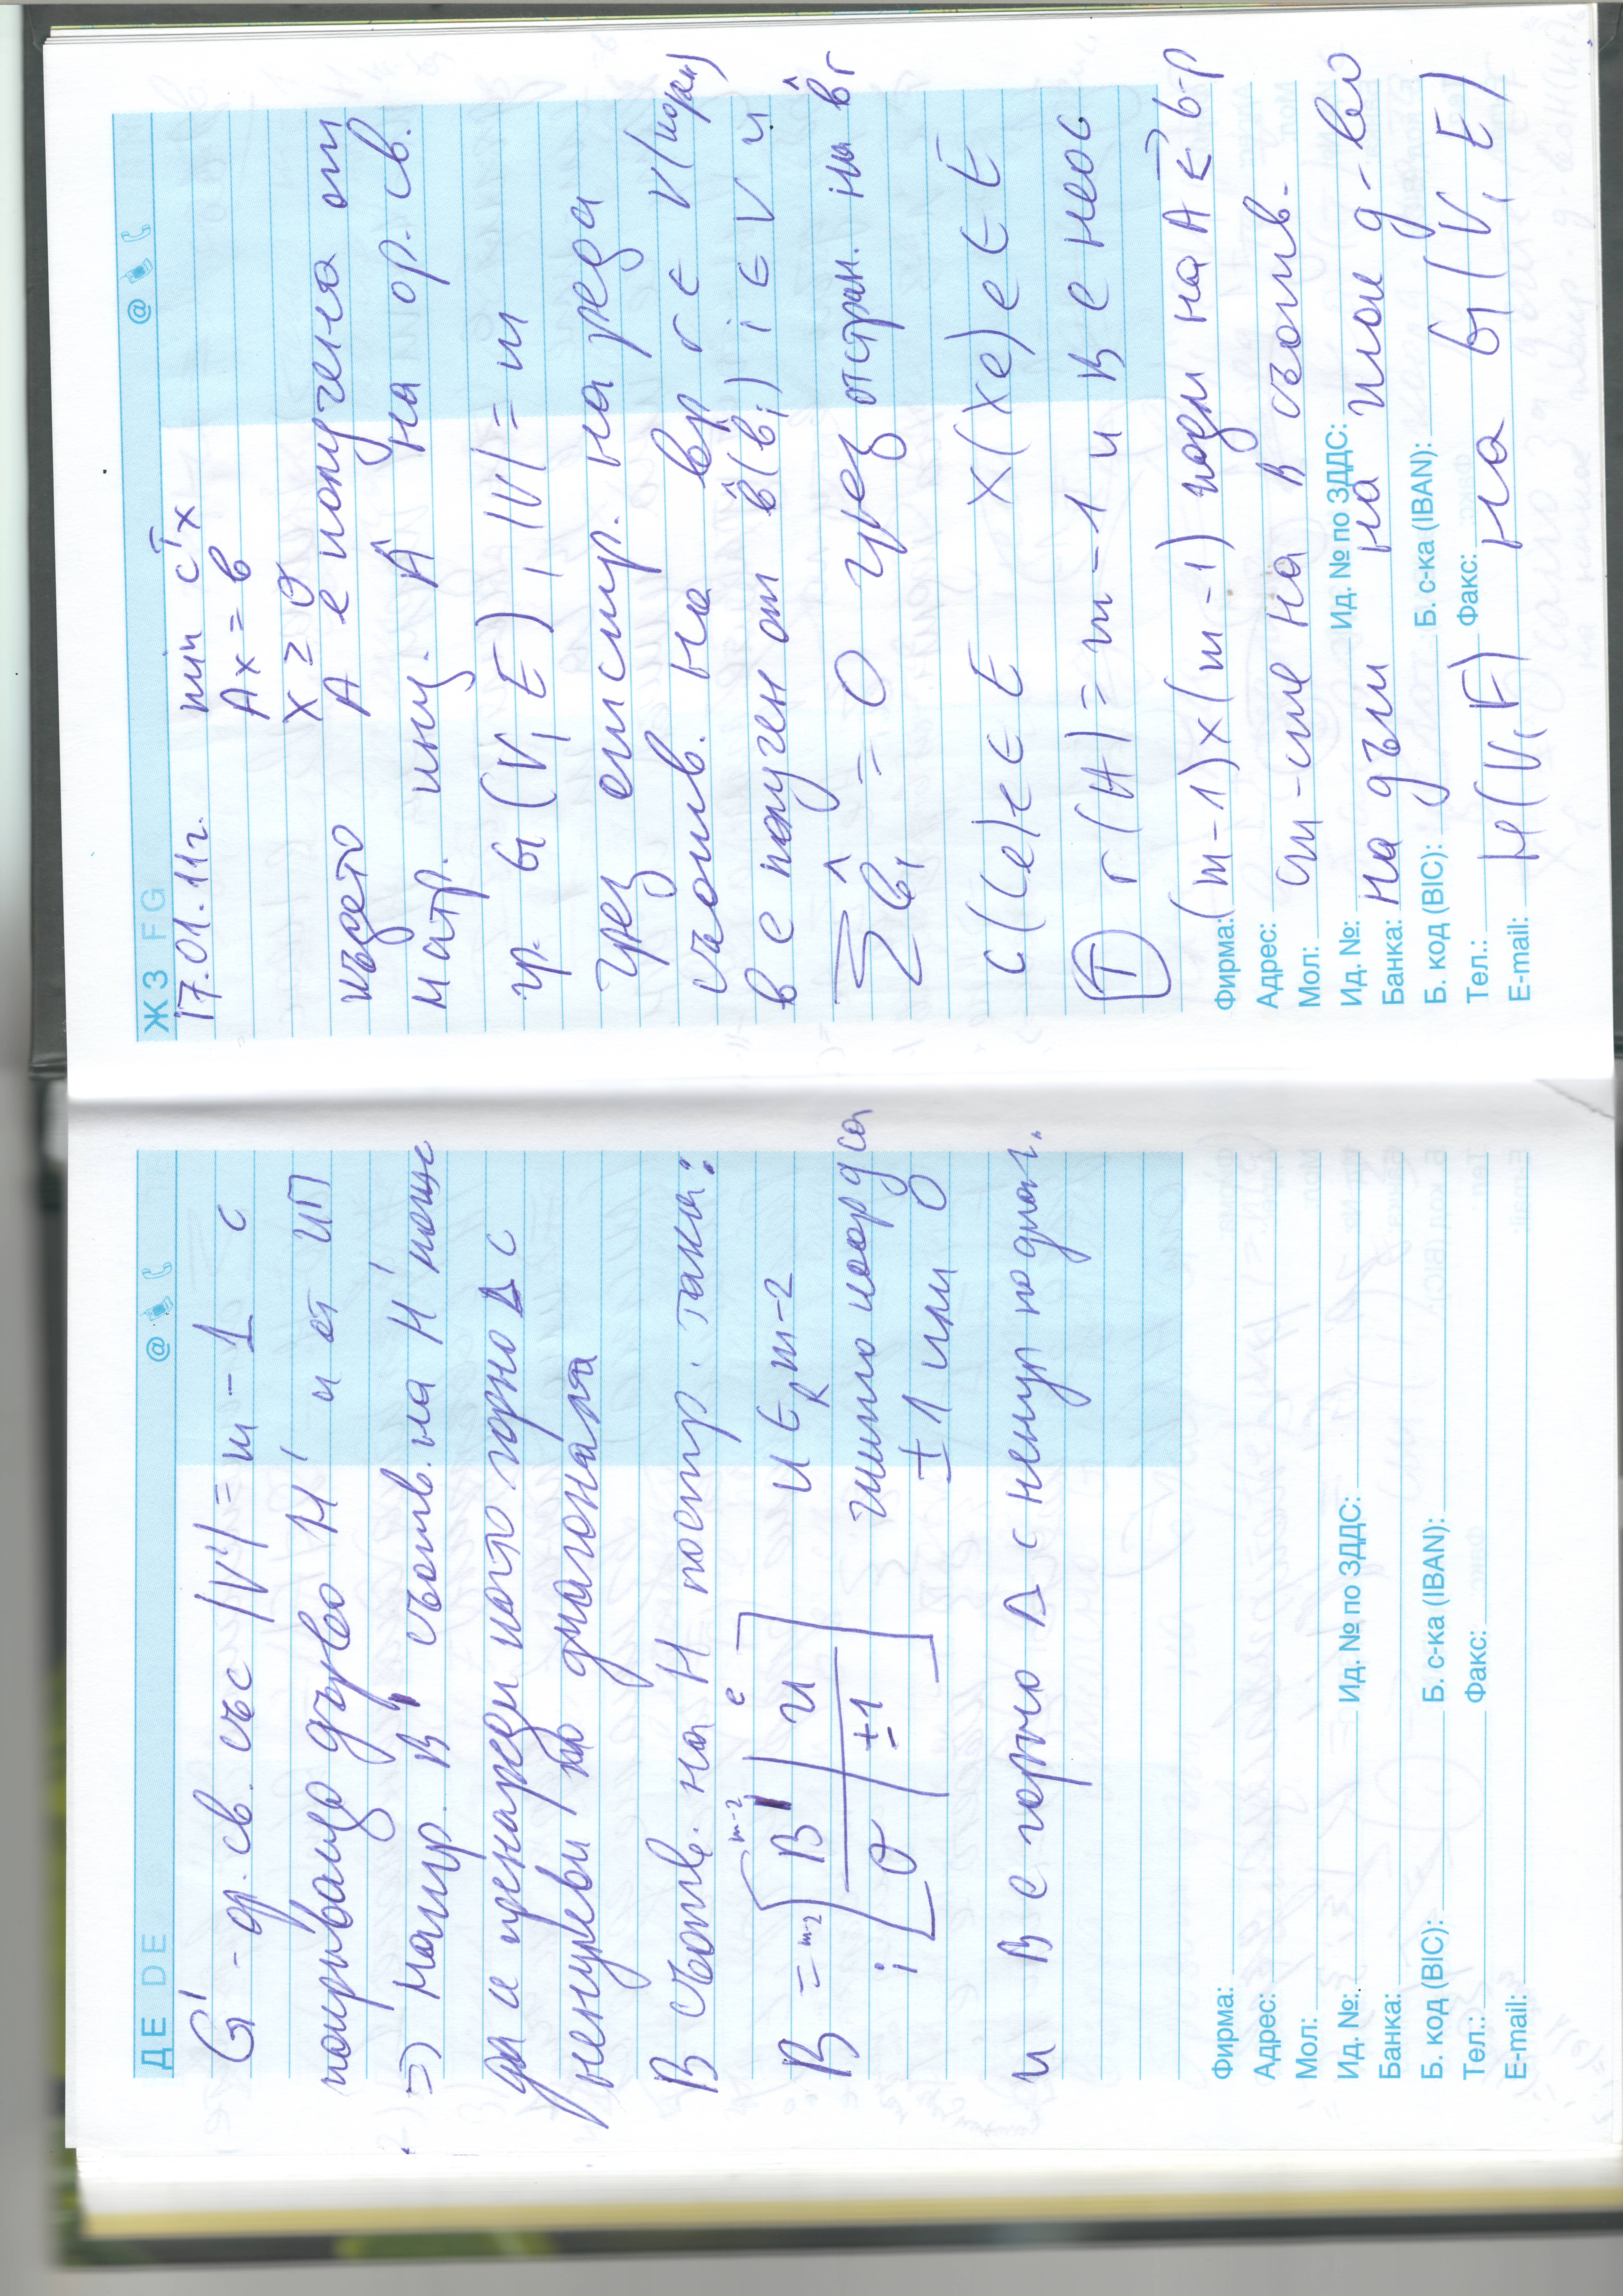 ДЕ DE
@
G' - ор. св. със |V'| = m - 1 с
покриващо дърво H' и от ИП
⇒ матр. B' съотв. на H' може
да и пренареди като горно Δ с
ненулеви по диагонала
B съотв. на H постр. така:
m-2 e
B = m-2 [ B' | u ] u ∈ R m-2
i [ 0 | ±1 ] коорд са
±1 или 0
и B е горно Δ с ненул по диаг.
Фирма:
Адрес:
Мол:
Ид. №: Ид. № по ЗДДС:
Банка:
Б. код (BIC): Б. с-ка (IBAN):
Тел.: Факс:
E-mail:
ЖЗ FG
@
17.01.11г. min cᵀx
Ax = b
x ≥ 0
където A е получена от
матр. инц. Â на ор. св.
гр. G (V, E), |V| = m
чрез елиминир. на реда
съотв. на вр r ∈ V (корен)
b е получен от b̂ (b̂i) i ∈ V и
∑ b̂i = 0 чрез отстран. на b̂r
c (ce) e ∈ E x (xe) e ∈ E
(T) r (A) = m - 1 и B е неос
(m-1)x(m-1) подм на A ⇔ b-p
ст-лте на B съотв.
на дъги на пок д-во
H (V, F) на G (V, E)
Фирма:
Адрес:
Мол:
Ид. №: Ид. № по ЗДДС:
Банка:
Б. код (BIC): Б. с-ка (IBAN):
Тел.: Факс:
E-mail: